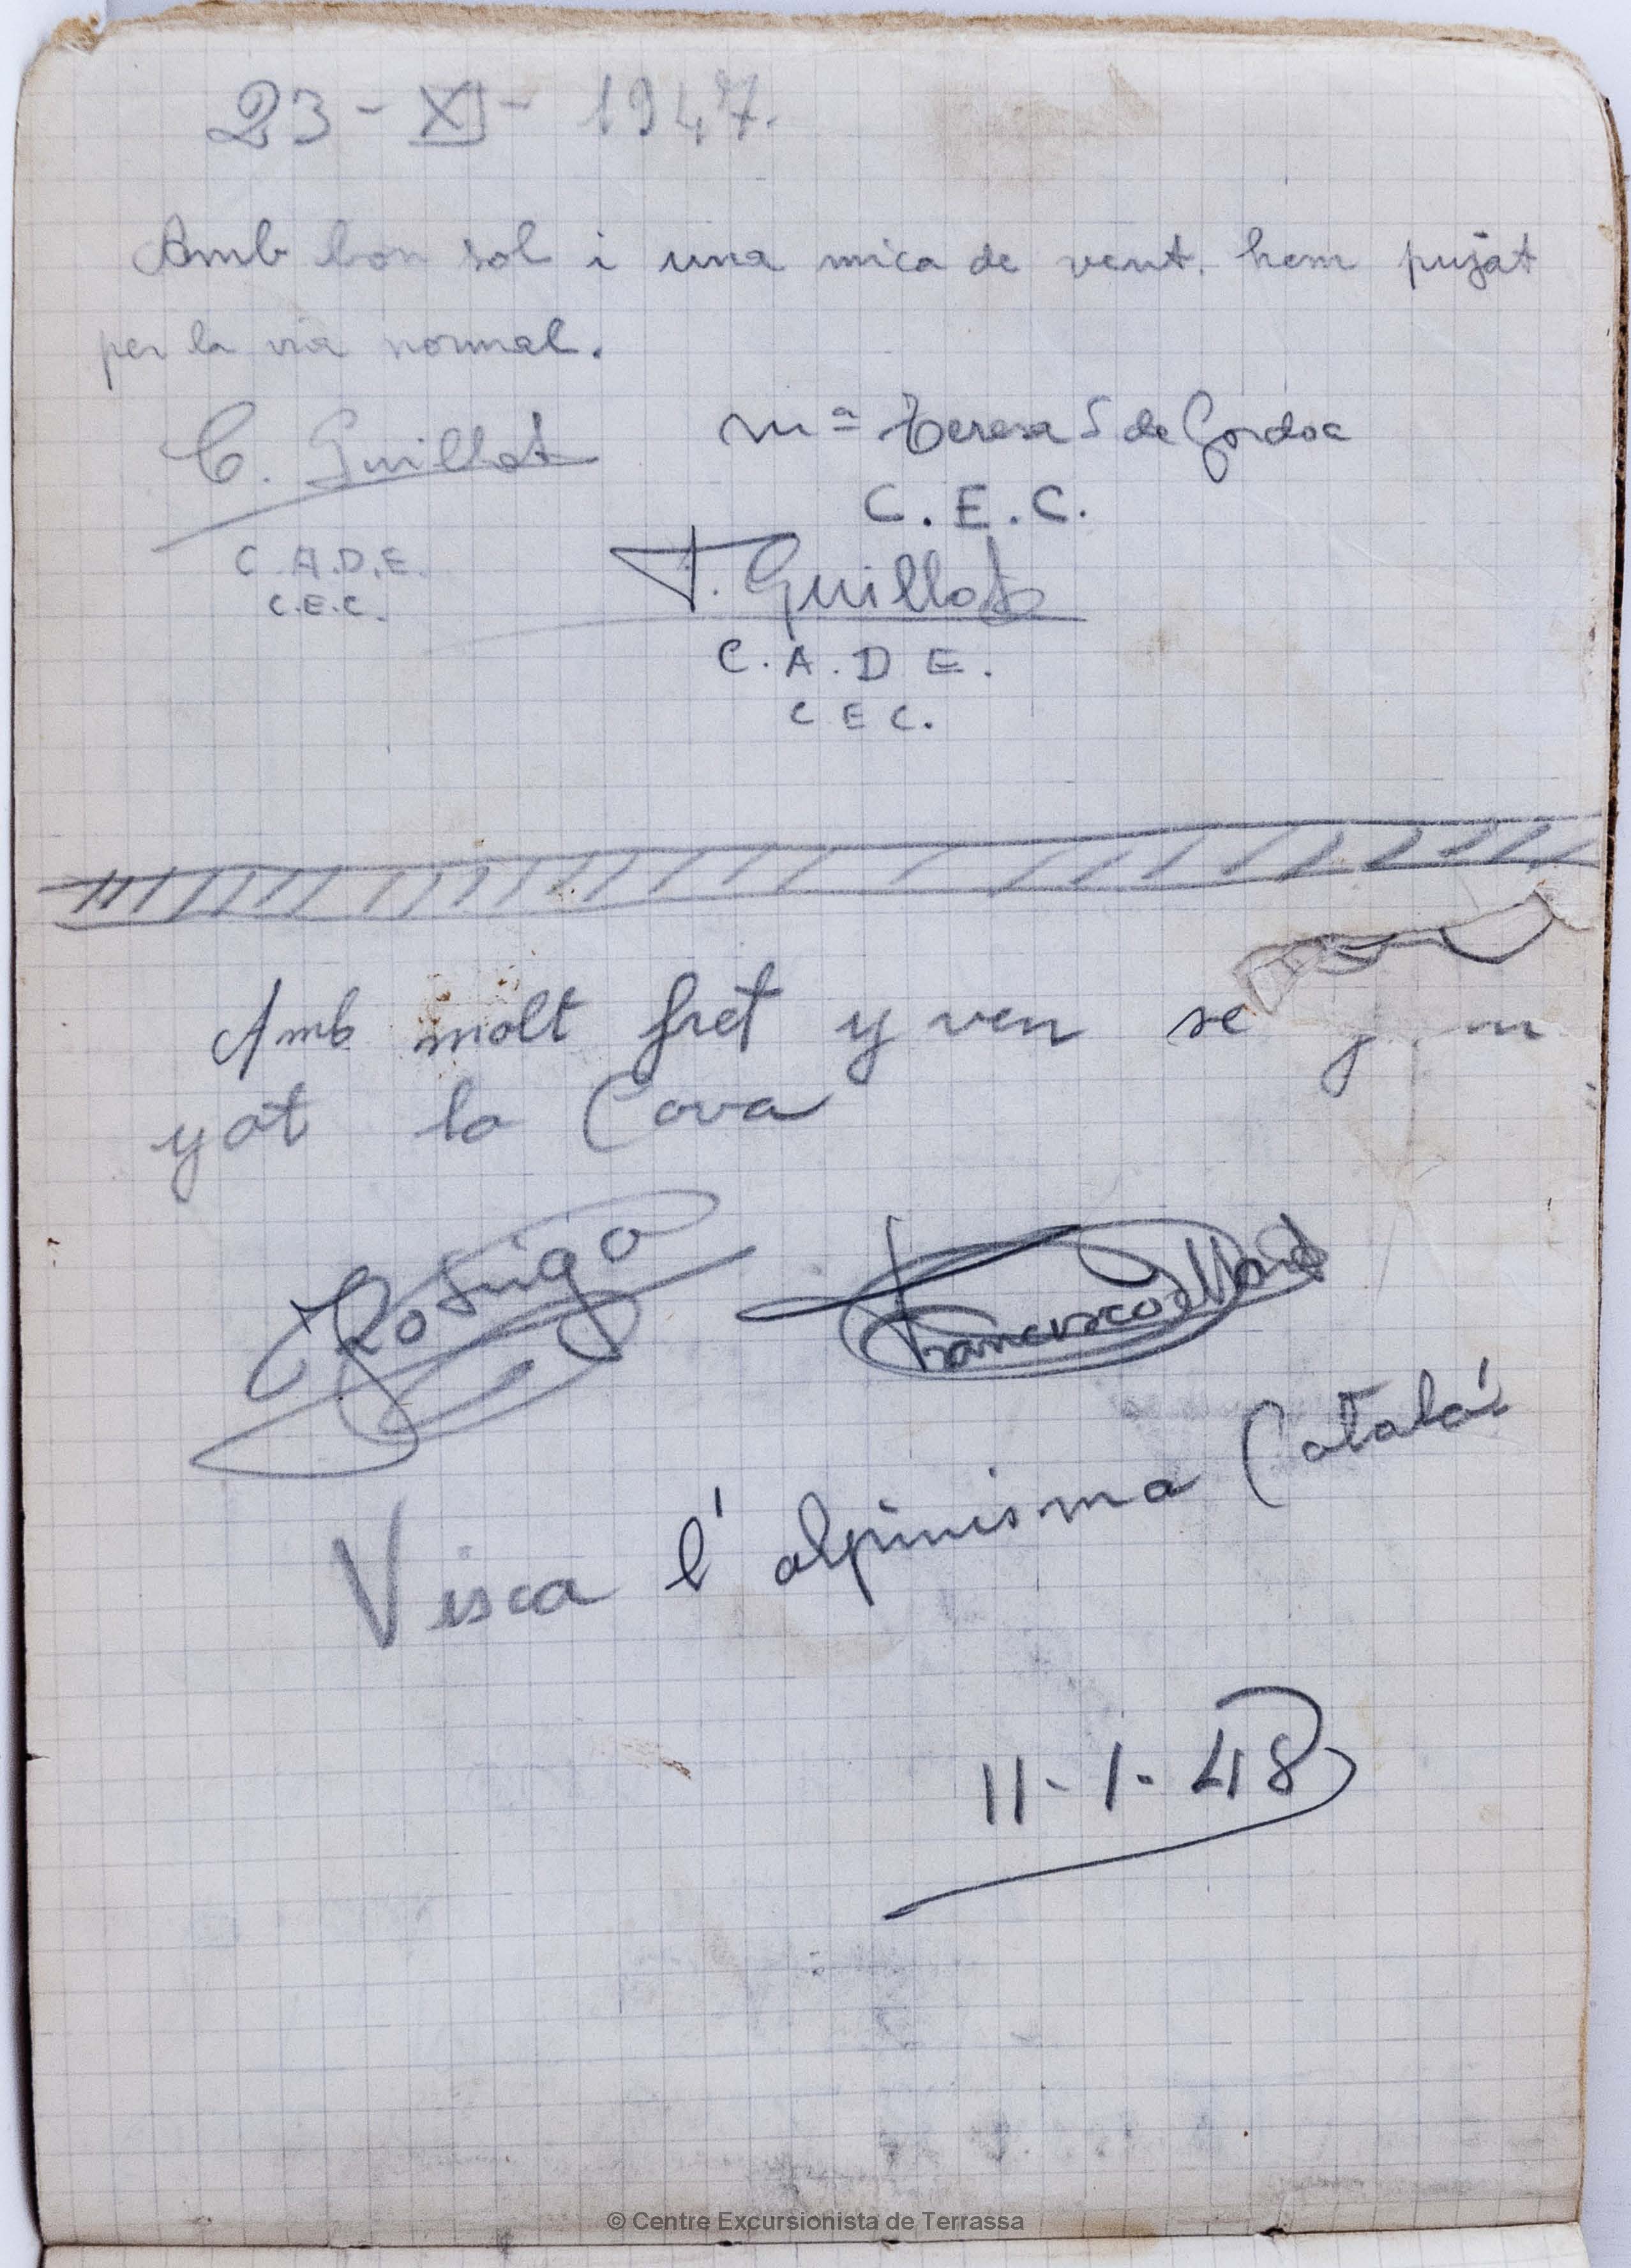 23 - XI - 1947.
Amb bon sol i una mica de vent. hem pujat
per la via normal.
C. Guillot
Mª Teresa S de Gordoa
C.E.C.
C.A.D.E.
C.E.C.
J. Guillot
C.A.D E.
C E C.
Amb molt fret y ven se
yat la Cova
Visca l'alpinisma Catalá
11-1-48
© Centre Excursionista de Terrassa